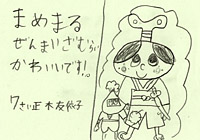 まめまる
ぜんまいざむらい
かわいいです!!
7さい正木友依子